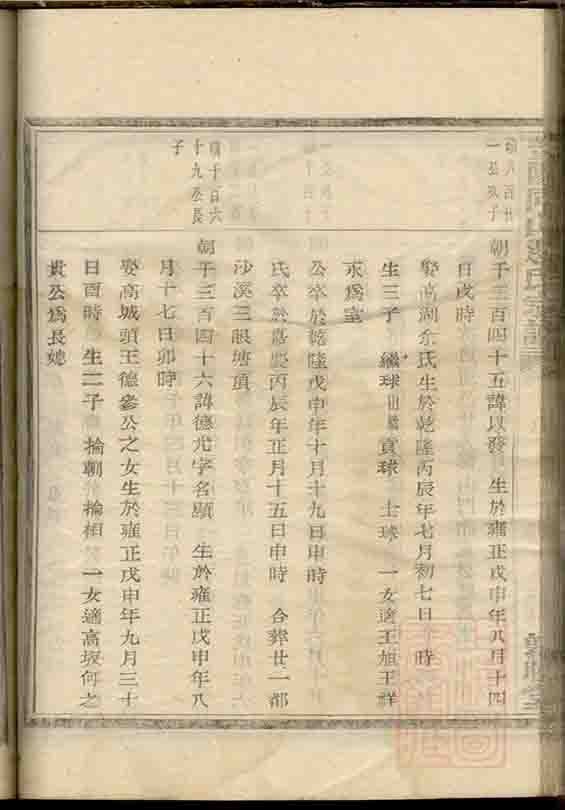 朝千三百四十五諱以發 生於雍正戊申年八月十四
日戌時
娶高湖余氏生於乾隆丙辰年七月初七日 時
生三子 繼球 寳球 士球 一女適王旭王祥
求爲室
公卒於乾隆戊申年十月十九日申時
氏卒於嘉慶丙辰年正月十五日申時 合葬廿二都
沙溪三眼塘頂
十百六
十九公長
子
朝千三百四十六諱德尤字名顯 生於雍正戊申年八
月十七日卯時
娶高城頭王德參公之女生於雍正戊申年九月三十
日酉時 生二子 掄朝 掄相 一女適高坂何之
貴公爲長媳